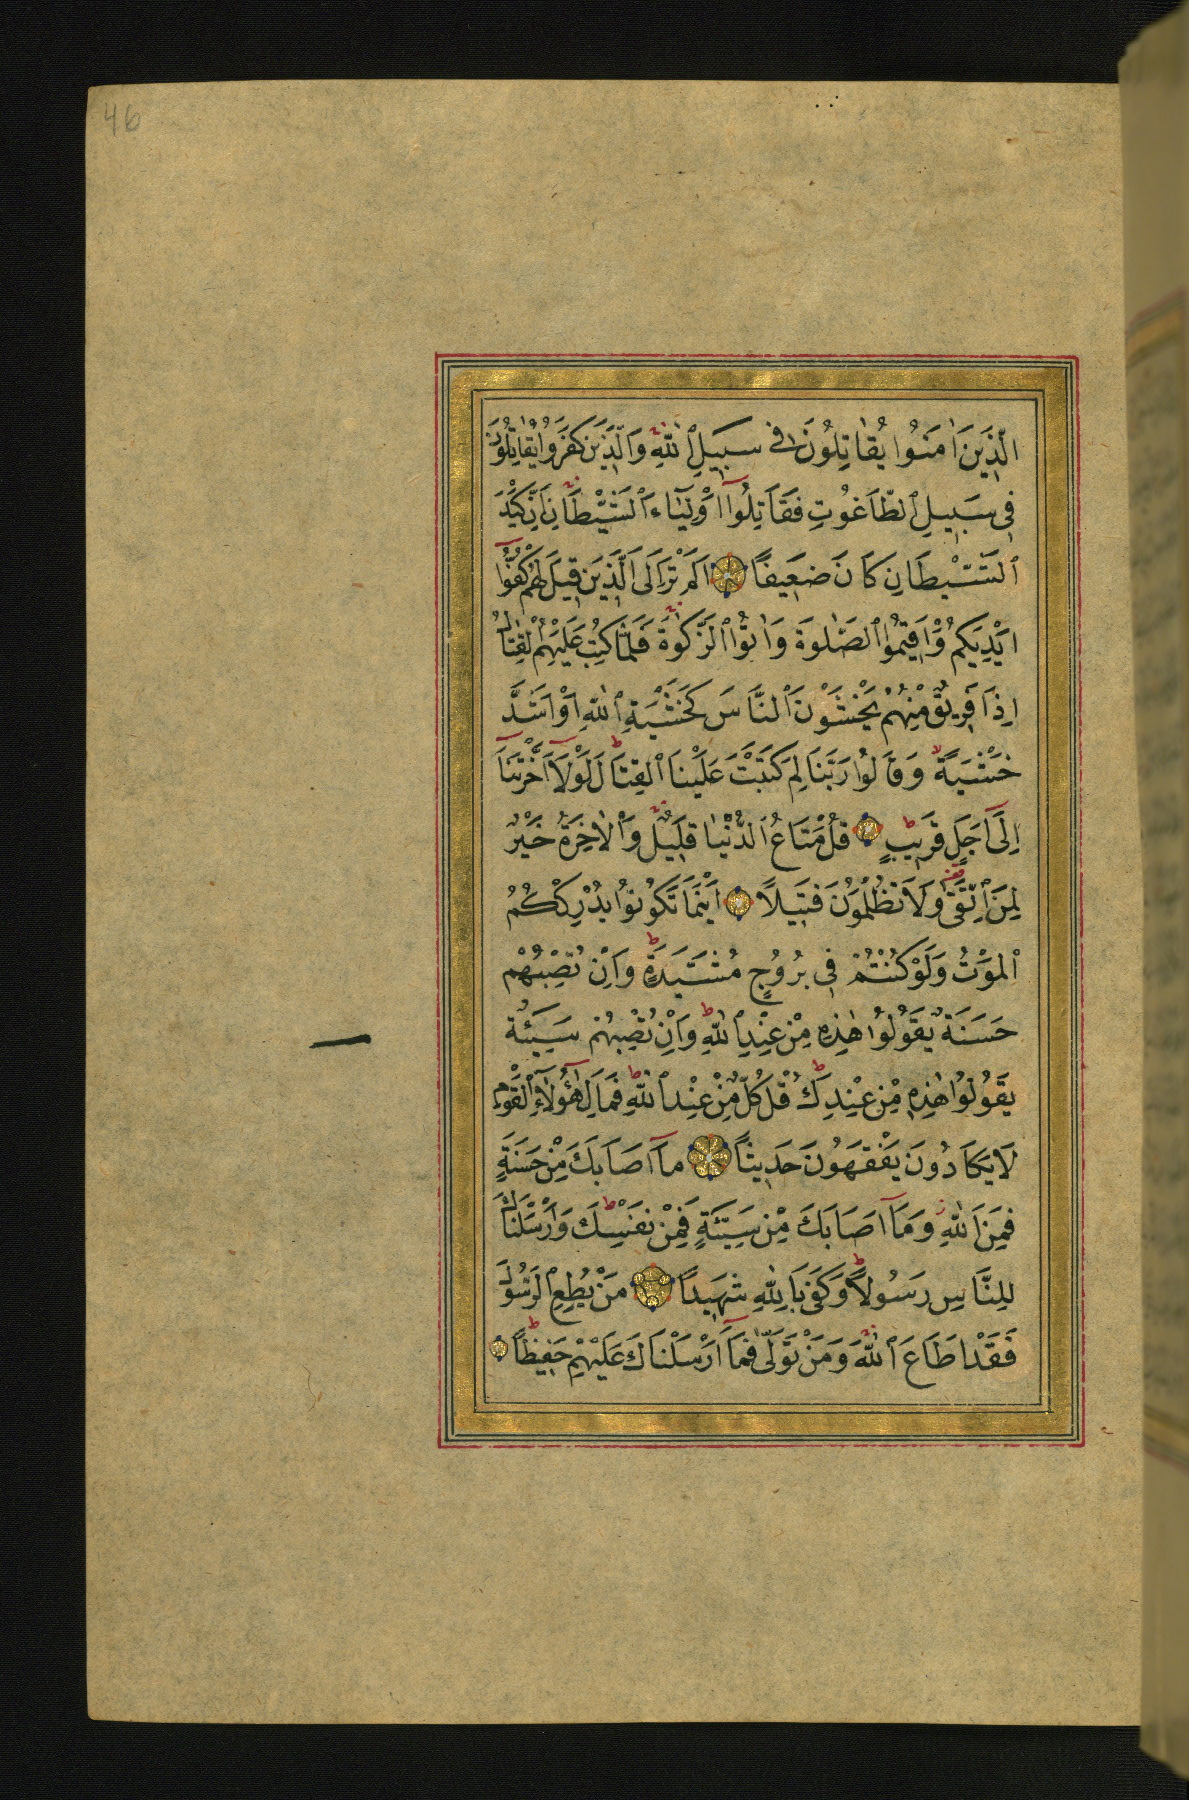 46
الَّذِينَ اٰمَنُوا يُقَاتِلُونَ فِي سَبِيلِ ٱللّٰهِ وَالَّذِينَ كَفَرُوا يُقَاتِلُونَ
فِي سَبِيلِ ٱلطَّاغُوتِ فَقَاتِلُوٓا اَوْلِيَٓاءَ ٱلشَّيْطَانِ اِنَّ كَيْدَ
ٱلشَّيْطَانِ كَانَ ضَعِيفًا اَلَمْ تَرَ اِلَى الَّذِينَ قِيلَ لَهُمْ كُفُّٓوا
اَيْدِيَكُمْ وَاَقِيمُوا ٱلصَّلٰوةَ وَاٰتُوا ٱلزَّكٰوةَ فَلَمَّا كُتِبَ عَلَيْهِمُ ٱلْقِتَالُ
اِذَا فَرِيقٌ مِنْهُمْ يَخْشَوْنَ ٱلنَّاسَ كَخَشْيَةِ ٱللّٰهِ اَوْ اَشَدَّ
خَشْيَةً وَقَالُوا رَبَّنَا لِمَ كَتَبْتَ عَلَيْنَا ٱلْقِتَالَ لَوْلَٓا اَخَّرْتَنَٓا
اِلَٓى اَجَلٍ قَرِيبٍ قُلْ مَتَاعُ ٱلدُّنْيَا قَلِيلٌ وَٱلْاٰخِرَةُ خَيْرٌ
لِمَنِ ٱتَّقٰى وَلَا تُظْلَمُونَ فَتِيلًا اَيْنَمَا تَكُونُوا يُدْرِكْكُمُ
ٱلْمَوْتُ وَلَوْ كُنْتُمْ فِي بُرُوجٍ مُشَيَّدَةٍ وَاِنْ تُصِبْهُمْ
حَسَنَةٌ يَقُولُوا هٰذِهِ مِنْ عِنْدِ ٱللّٰهِ وَاِنْ تُصِبْهُمْ سَيِّئَةٌ
يَقُولُوا هٰذِهِ مِنْ عِنْدِكَ قُلْ كُلٌّ مِنْ عِنْدِ ٱللّٰهِ فَمَالِ هٰٓؤُلَٓاءِ ٱلْقَوْمِ
لَا يَكَادُونَ يَفْقَهُونَ حَدِيثًا مَٓا اَصَابَكَ مِنْ حَسَنَةٍ
فَمِنَ ٱللّٰهِ وَمَٓا اَصَابَكَ مِنْ سَيِّئَةٍ فَمِنْ نَفْسِكَ وَاَرْسَلْنَاكَ
لِلنَّاسِ رَسُولًا وَكَفٰى بِٱللّٰهِ شَهِيدًا مَنْ يُطِعِ ٱلرَّسُولَ
فَقَدْ اَطَاعَ ٱللّٰهَ وَمَنْ تَوَلّٰى فَمَٓا اَرْسَلْنَاكَ عَلَيْهِمْ حَفِيظًا